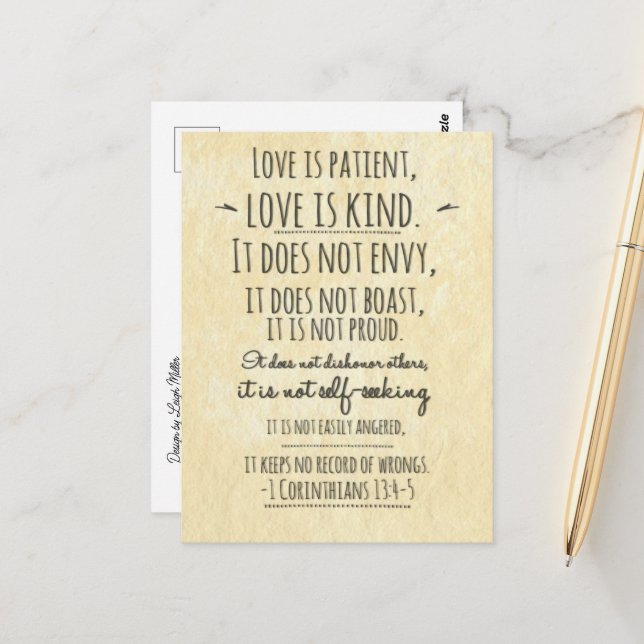 Love is patient,
love is kind.
It does not envy,
it does not boast,
it is not proud.
It does not dishonor others,
it is not self-seeking
it is not easily angered,
it keeps no record of wrongs.
-1 Corinthians 13:4-5
Design by Leigh Miller